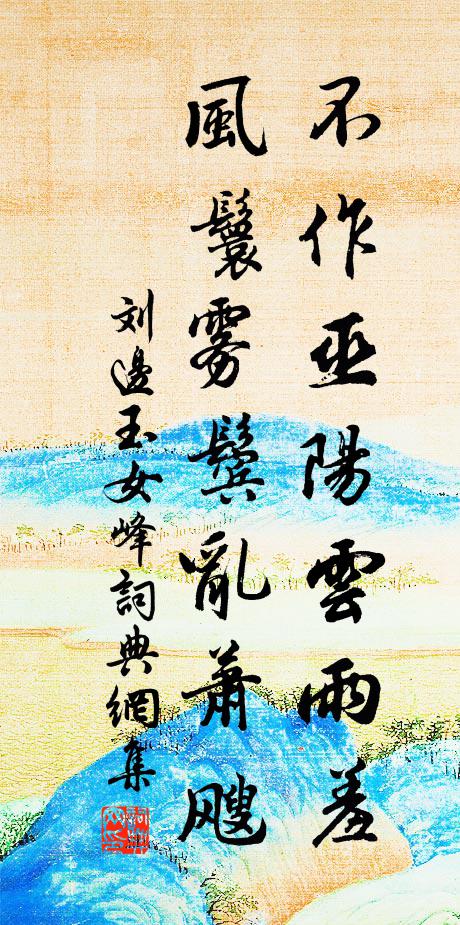 不作巫陽雲雨羞
風鬟雾鬓亂蕭颼
刘邊玉女峰詞典網集